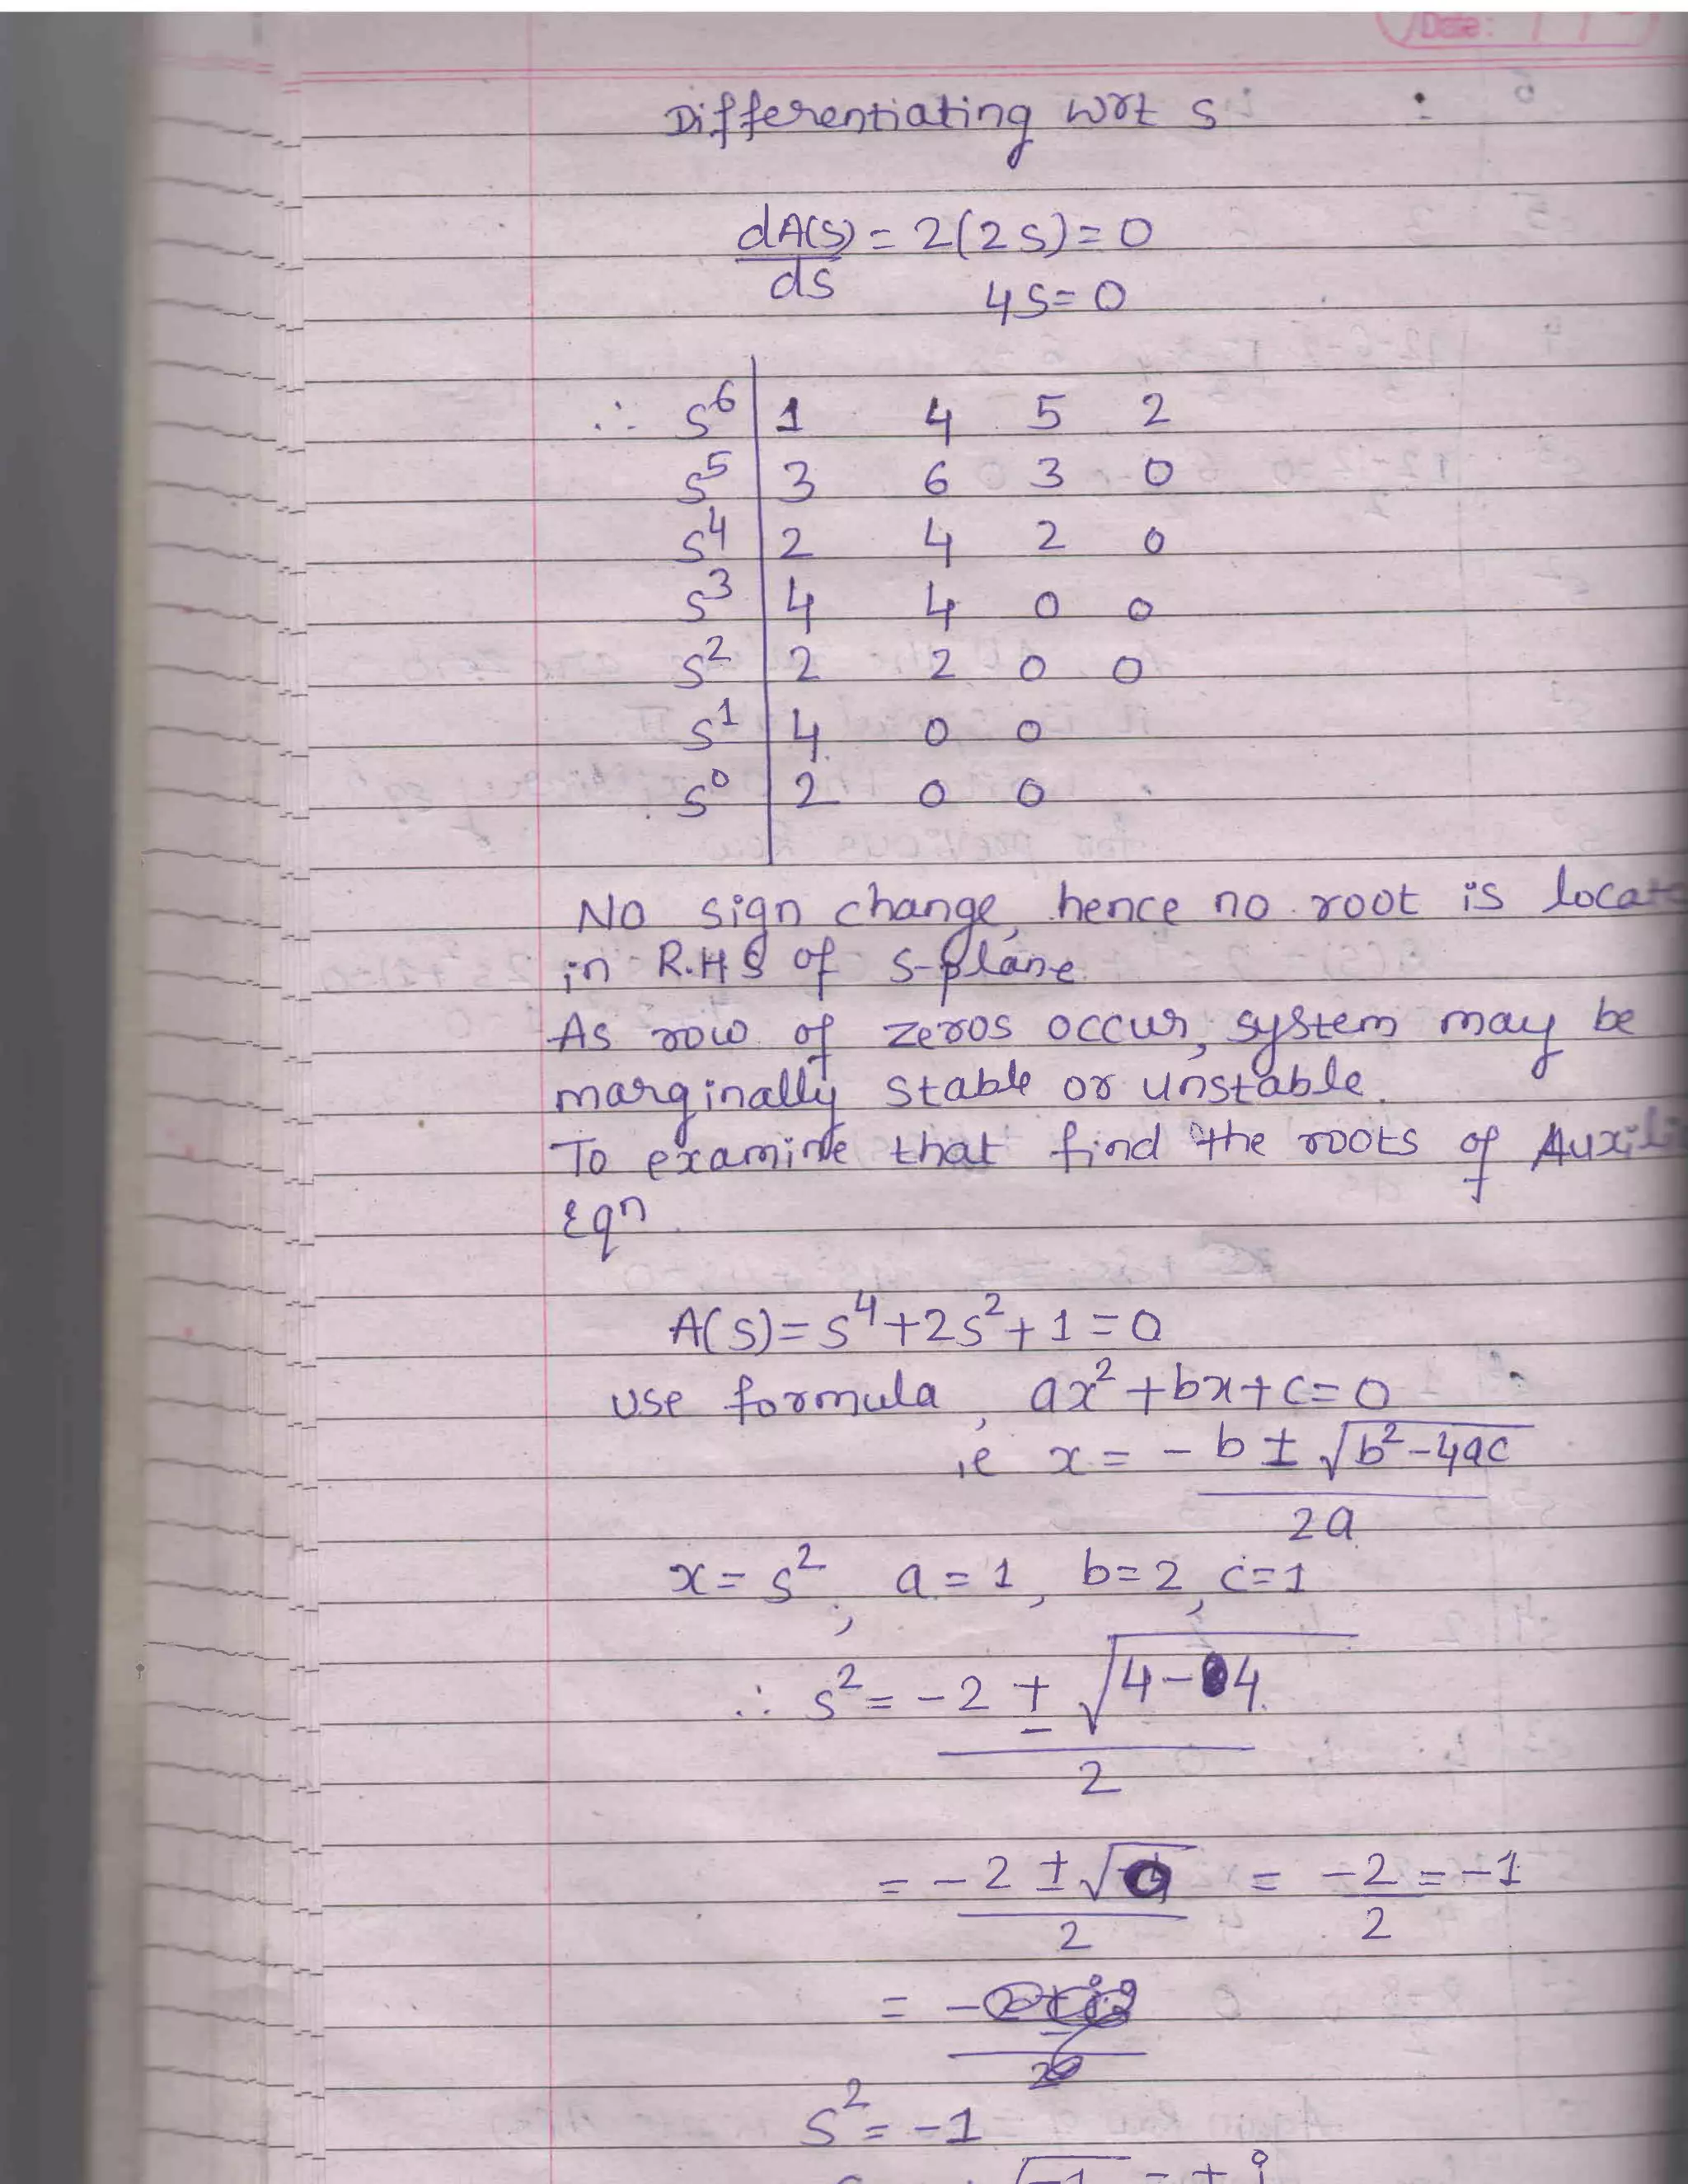 Date:
Differentiating wrt s
dA(s)/ds = 2(2s) = 0
4s = 0
∴ s⁶ | 1 4 5 2
s⁵ | 3 6 3 0
s⁴ | 2 4 2 0
s³ | 4 4 0 0
s² | 2 2 0 0
s¹ | 4 0 0
s⁰ | 2 0 0
No sign change, hence no root is locate
in R.H.S of s-plane.
As row of zeros occur, system may be
marginally stable or unstable.
To examine that find the roots of Auxili
Eqn
A(s) = s⁴ + 2s² + 1 = 0
use formula, ax² + bx + c = 0
ie x = -b ± √(b² - 4ac) / 2a
x = s², a = 1, b = 2, c = 1
∴ s² = -2 ± √(4 - 4) / 2
= -2 ± √0 / 2 = -2/2 = -1
s² = -1
√-1 = ± j